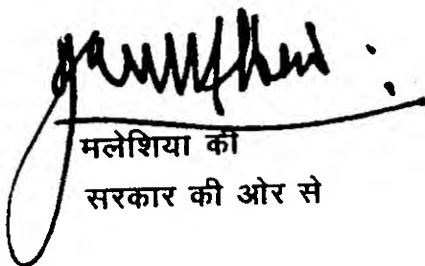 मलेशिया की
सरकार की ओर से